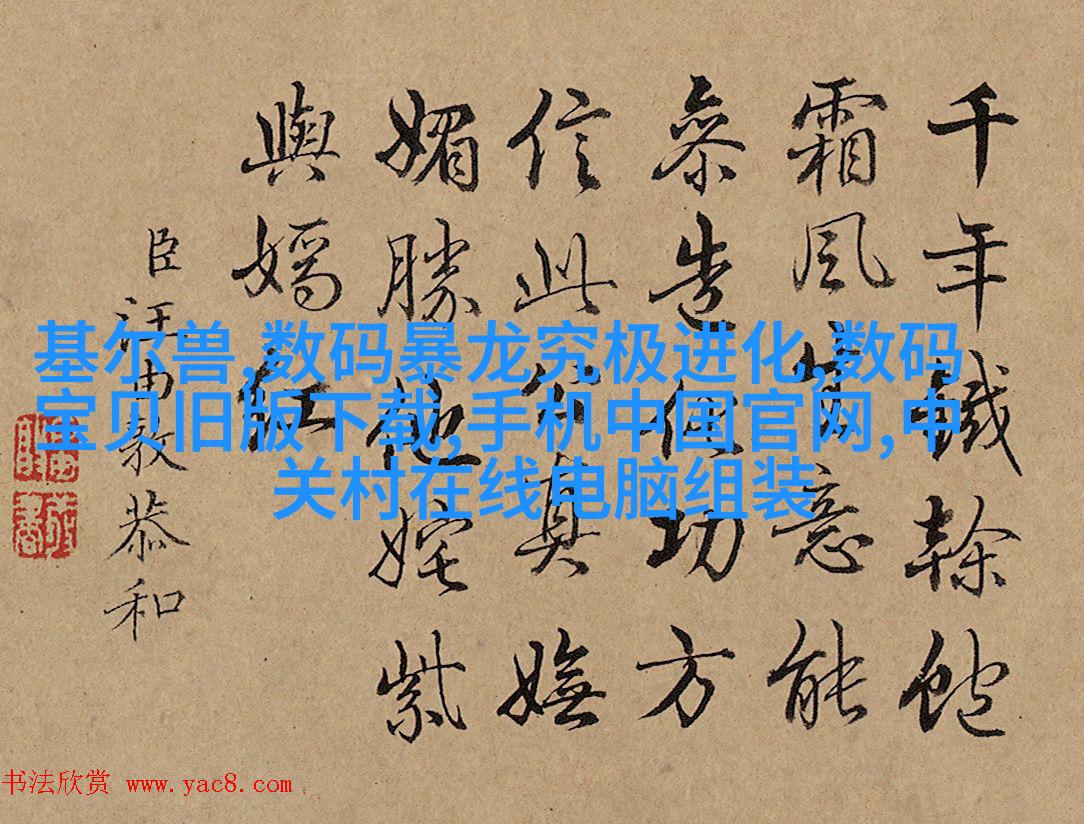 千年鐵幹飽
霜風生意能
參造化功方
信此真嫵
媚勝他姹紫
與嫣紅
臣汪由敦恭和
基尔兽,数码暴龙究极进化,数码
宝贝旧版下载,手机中国官网,中
关村在线电脑组装
书法欣赏 www.yac8.com